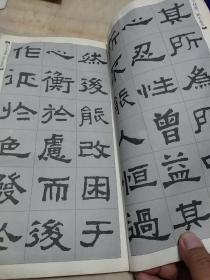 其所
心忍性曾益其
所不能人恒過
然後能改困于
心衡於慮而後
作征於色發於